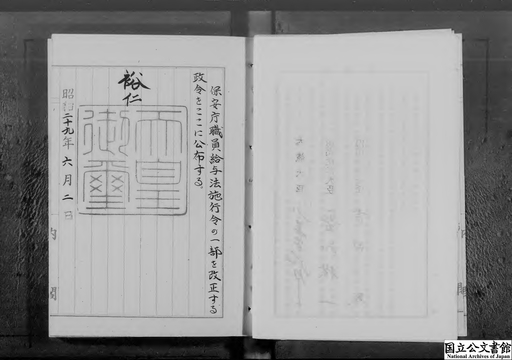 保安庁職員給与法施行令の一部を改正する
政令をここに公布する
裕仁
天皇
御璽
昭和二十九年六月二日
内
閣
国立公文書館
National Archives of Japan